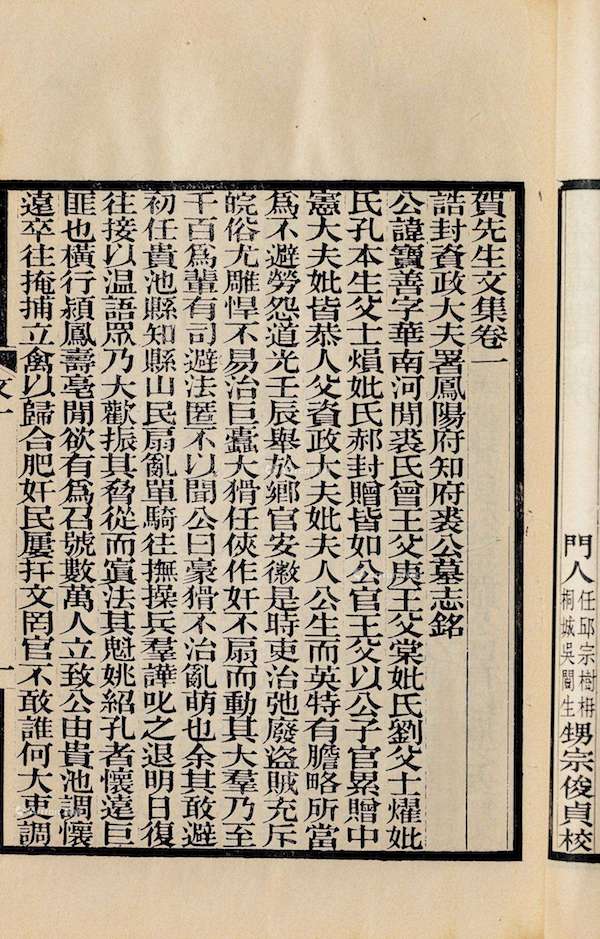 門人 任邱宗樹枬 甥宗俊貞校
桐城吳闓生
賀先生文集卷一
誥封資政大夫署鳳陽府知府裘公墓志銘
公諱寶善字華南河閒裘氏曾王父庚王父棠妣氏劉父士燿妣
氏孔本生父士熉妣氏郝封贈皆如公官王父以公子官累贈中
憲大夫妣皆恭人父資政大夫妣夫人公生而英特有膽略所當
為不避勞怨道光壬辰舉於鄉官安徽是時吏治弛廢盜賊充斥
皖俗尤雕悍不易治巨蠹大猾任俠作奸不扇而動其大羣乃至
千百為輩有司避法匿不以聞公曰豪猾不治亂萌也余其敢避
初任貴池縣知縣山民扇亂單騎往撫操兵羣譁叱之退明日復
往接以温語眾乃大歡振其脅從而寘法其魁姚紹孔者懷遠巨
匪也橫行潁鳳壽亳閒欲有為召號數萬人立致公由貴池調懷
遠卒往掩捕立禽以歸合肥奸民屢扞文罔官不敢誰何大吏調
文一
一